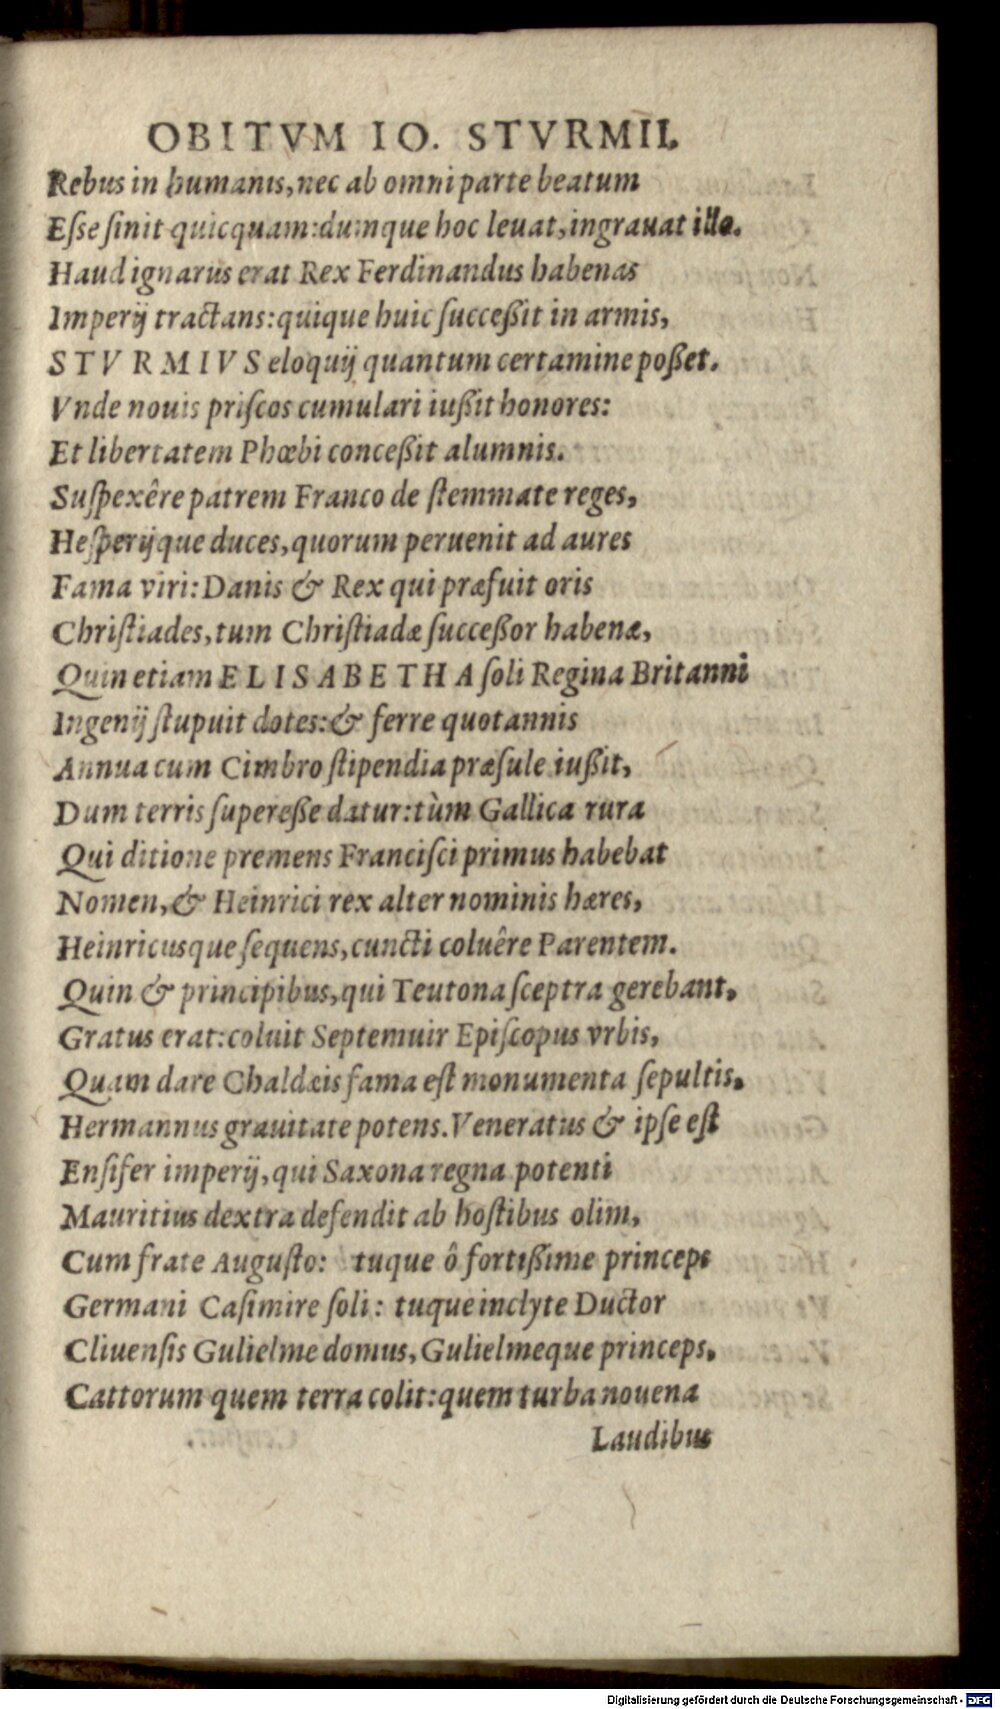 OBITVM IO. STVRMII.
Rebus in humanis, nec ab omni parte beatum
Eſſe ſinit quicquam: dumque hoc leuat, ingrauat illo.
Haud ignarus erat Rex Ferdinandus habenas
Imperij tractans: quique huic ſucceßit in armis,
STVRMIVS eloquij quantum certamine poßet.
Vnde nouis priſcos cumulari iußit honores:
Et libertatem Phœbi conceßit alumnis.
Suſpexêre patrem Franco de ſtemmate reges,
Heſperijque duces, quorum peruenit ad aures
Fama viri: Danis & Rex qui præfuit oris
Chriſtiades, tum Chriſtiadæ ſucceßor habenæ,
Quin etiam ELISABETHA ſoli Regina Britanni
Ingenij ſtupuit dotes: & ferre quotannis
Annua cum Cimbro ſtipendia præſule iußit,
Dum terris ſupereße datur: tùm Gallica rura
Qui ditione premens Franciſci primus habebat
Nomen, & Heinrici rex alter nominis hæres,
Heinricusque ſequens, cuncti coluêre Parentem.
Quin & principibus, qui Teutona ſceptra gerebant,
Gratus erat: coluit Septemuir Epiſcopus vrbis,
Quam dare Chaldæis fama eſt monumenta ſepultis.
Hermannus grauitate potens. Veneratus & ipſe eſt
Enſifer imperij, qui Saxona regna potenti
Mauritius dextra defendit ab hoſtibus olim,
Cum frate Auguſto: tuque ô fortißime princeps
Germani Caſimire ſoli: tuque inclyte Ductor
Cliuenſis Gulielme domus, Gulielmeque princeps,
Cattorum quem terra colit: quem turba nouena
Laudibus
Digitalisierung gefördert durch die Deutsche Forschungsgemeinschaft - DFG